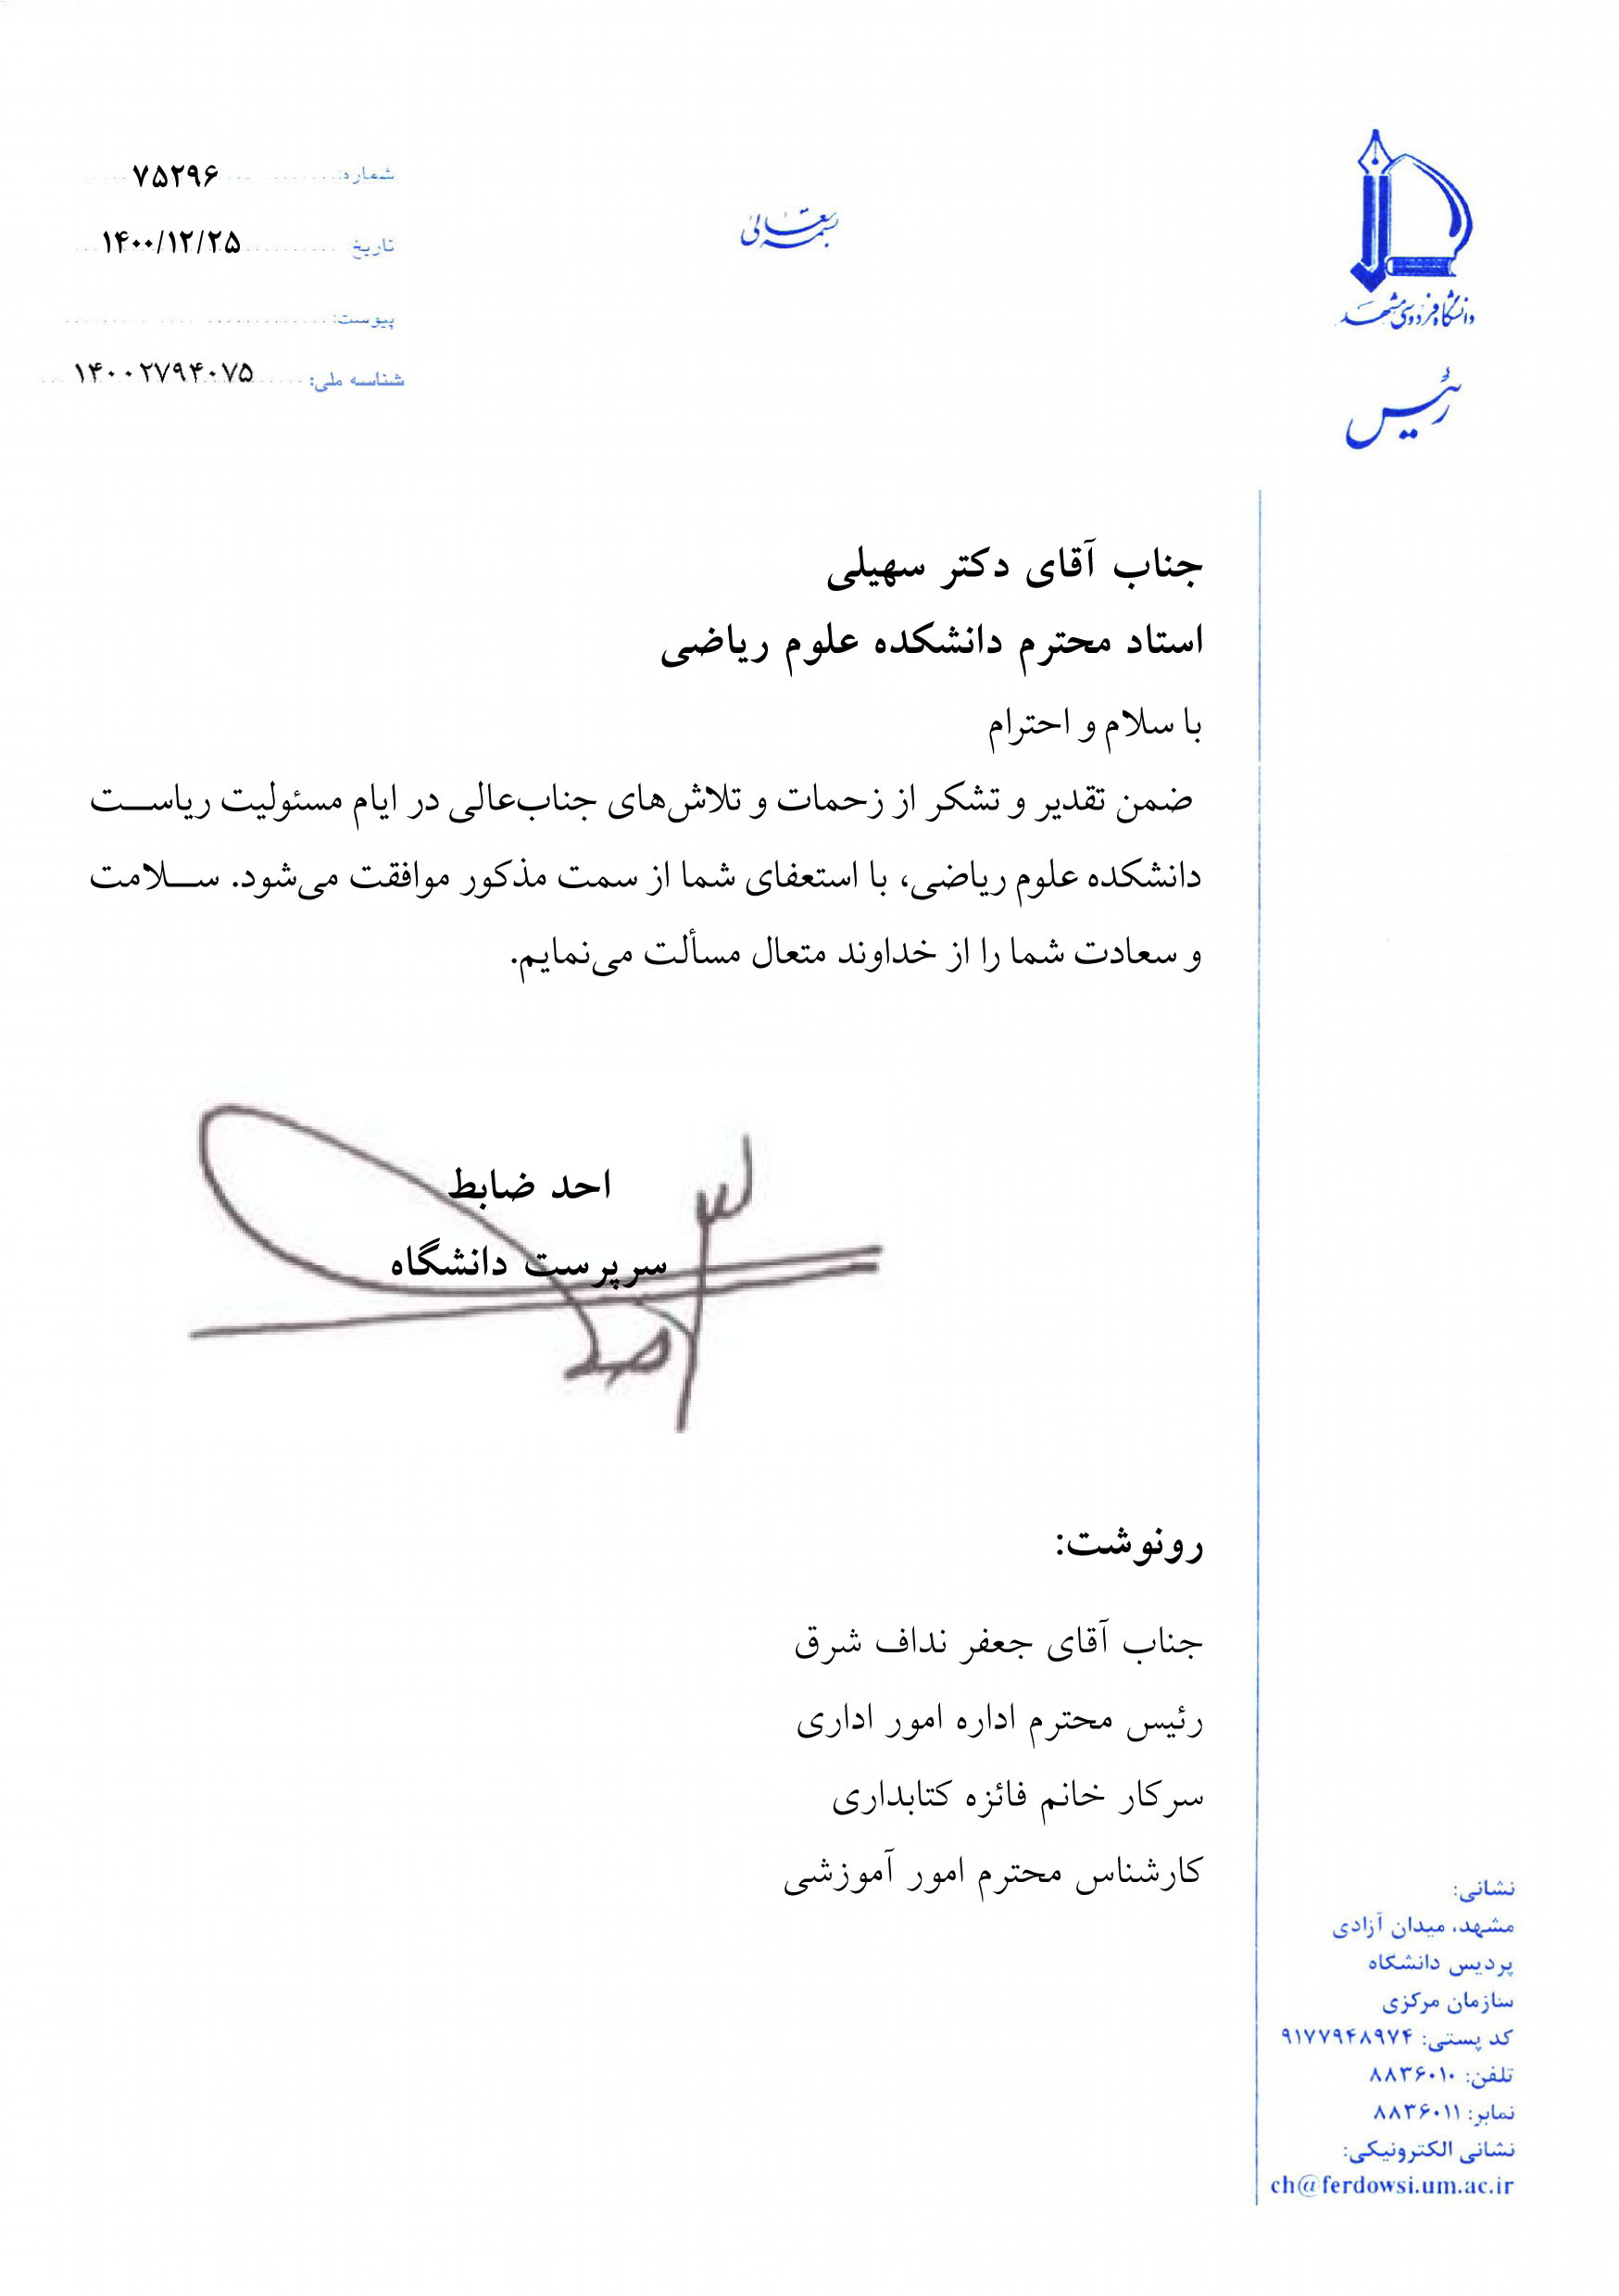 بسمه تعالی
دانشگاه فردوسی مشهد
رئیس
شماره: ۷۵۲۹۶
تاریخ ۱۴۰۰/۱۲/۲۵
پیوست:
شناسه ملی: ۱۴۰۰۲۷۹۴۰۷۵
جناب آقای دکتر سهیلی
استاد محترم دانشکده علوم ریاضی
با سلام و احترام
ضمن تقدیر و تشکر از زحمات و تلاش‌های جناب‌عالی در ایام مسئولیت ریاست
دانشکده علوم ریاضی، با استعفای شما از سمت مذکور موافقت می‌شود. سلامت
و سعادت شما را از خداوند متعال مسألت می‌نمایم.
احد ضابط
سرپرست دانشگاه
رونوشت:
جناب آقای جعفر نداف شرق
رئیس محترم اداره امور اداری
سرکار خانم فائزه کتابداری
کارشناس محترم امور آموزشی
نشانی:
مشهد، میدان آزادی
پردیس دانشگاه
سازمان مرکزی
کد پستی: ۹۱۷۷۹۴۸۹۷۴
تلفن: ۸۸۳۶۰۱۰
نمابر: ۸۸۳۶۰۱۱
نشانی الکترونیکی:
ch@ferdowsi.um.ac.ir